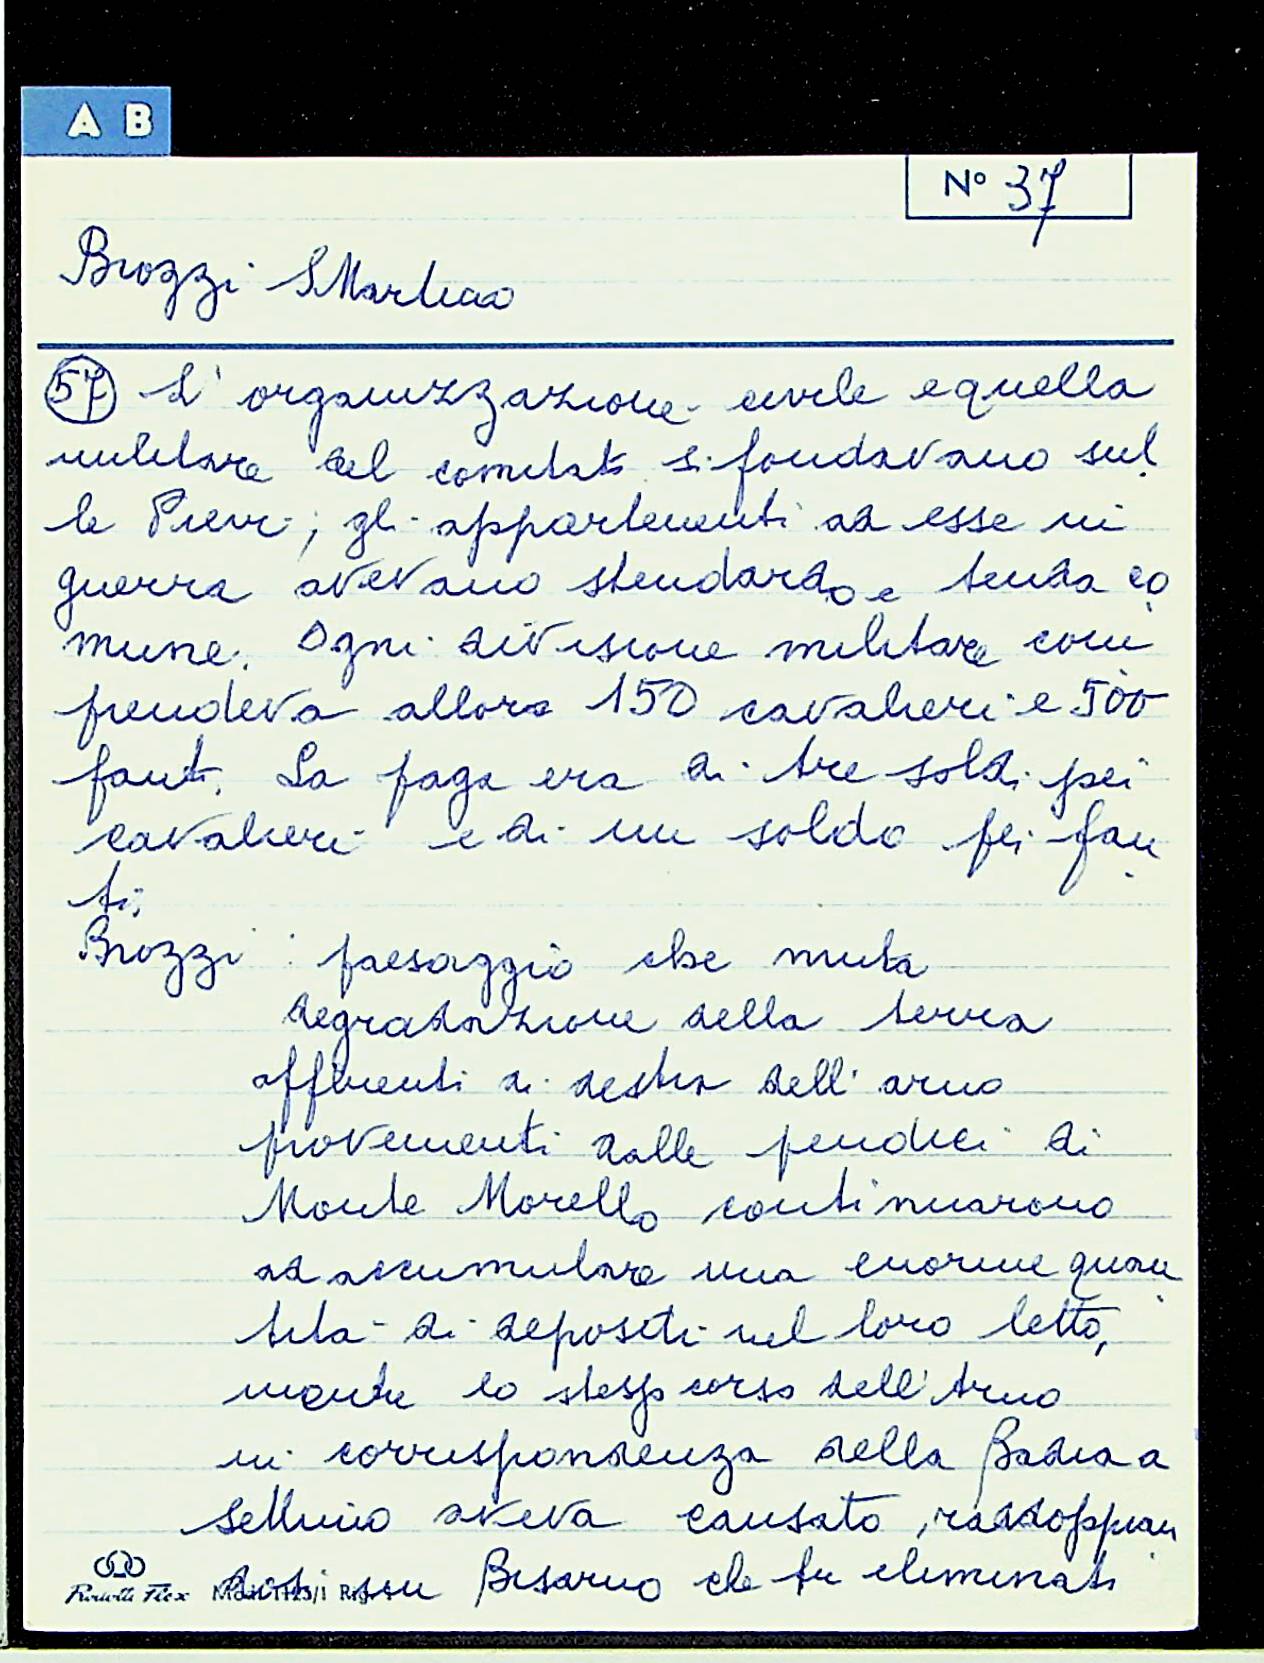 A B
Nº 37
Brozzi S Martino
57 L'organizzazione civile e quella
militare del comitato si fondavano sul
le Pievi; gli appartenenti ad esse in
guerra avevano stendardo e tenda co
mune. Ogni divisione militare com
prendeva allora 150 cavalieri e 500
fanti. La paga era di tre soldi pei
cavalieri e di un soldo pei fan
ti.
Brozzi : paesaggio che muta
degradazione della terra
affluenti di destra dell'arno
provenienti dalle pendici di
Monte Morello continuarono
ad accumulare una enorme quan
tità di depositi nel loro letto,
mentre lo stesso corso dell'Arno
in corrispondenza della Badia a
Settimo aveva causato, raddoppian
dosi su Bisarno che fu eliminato